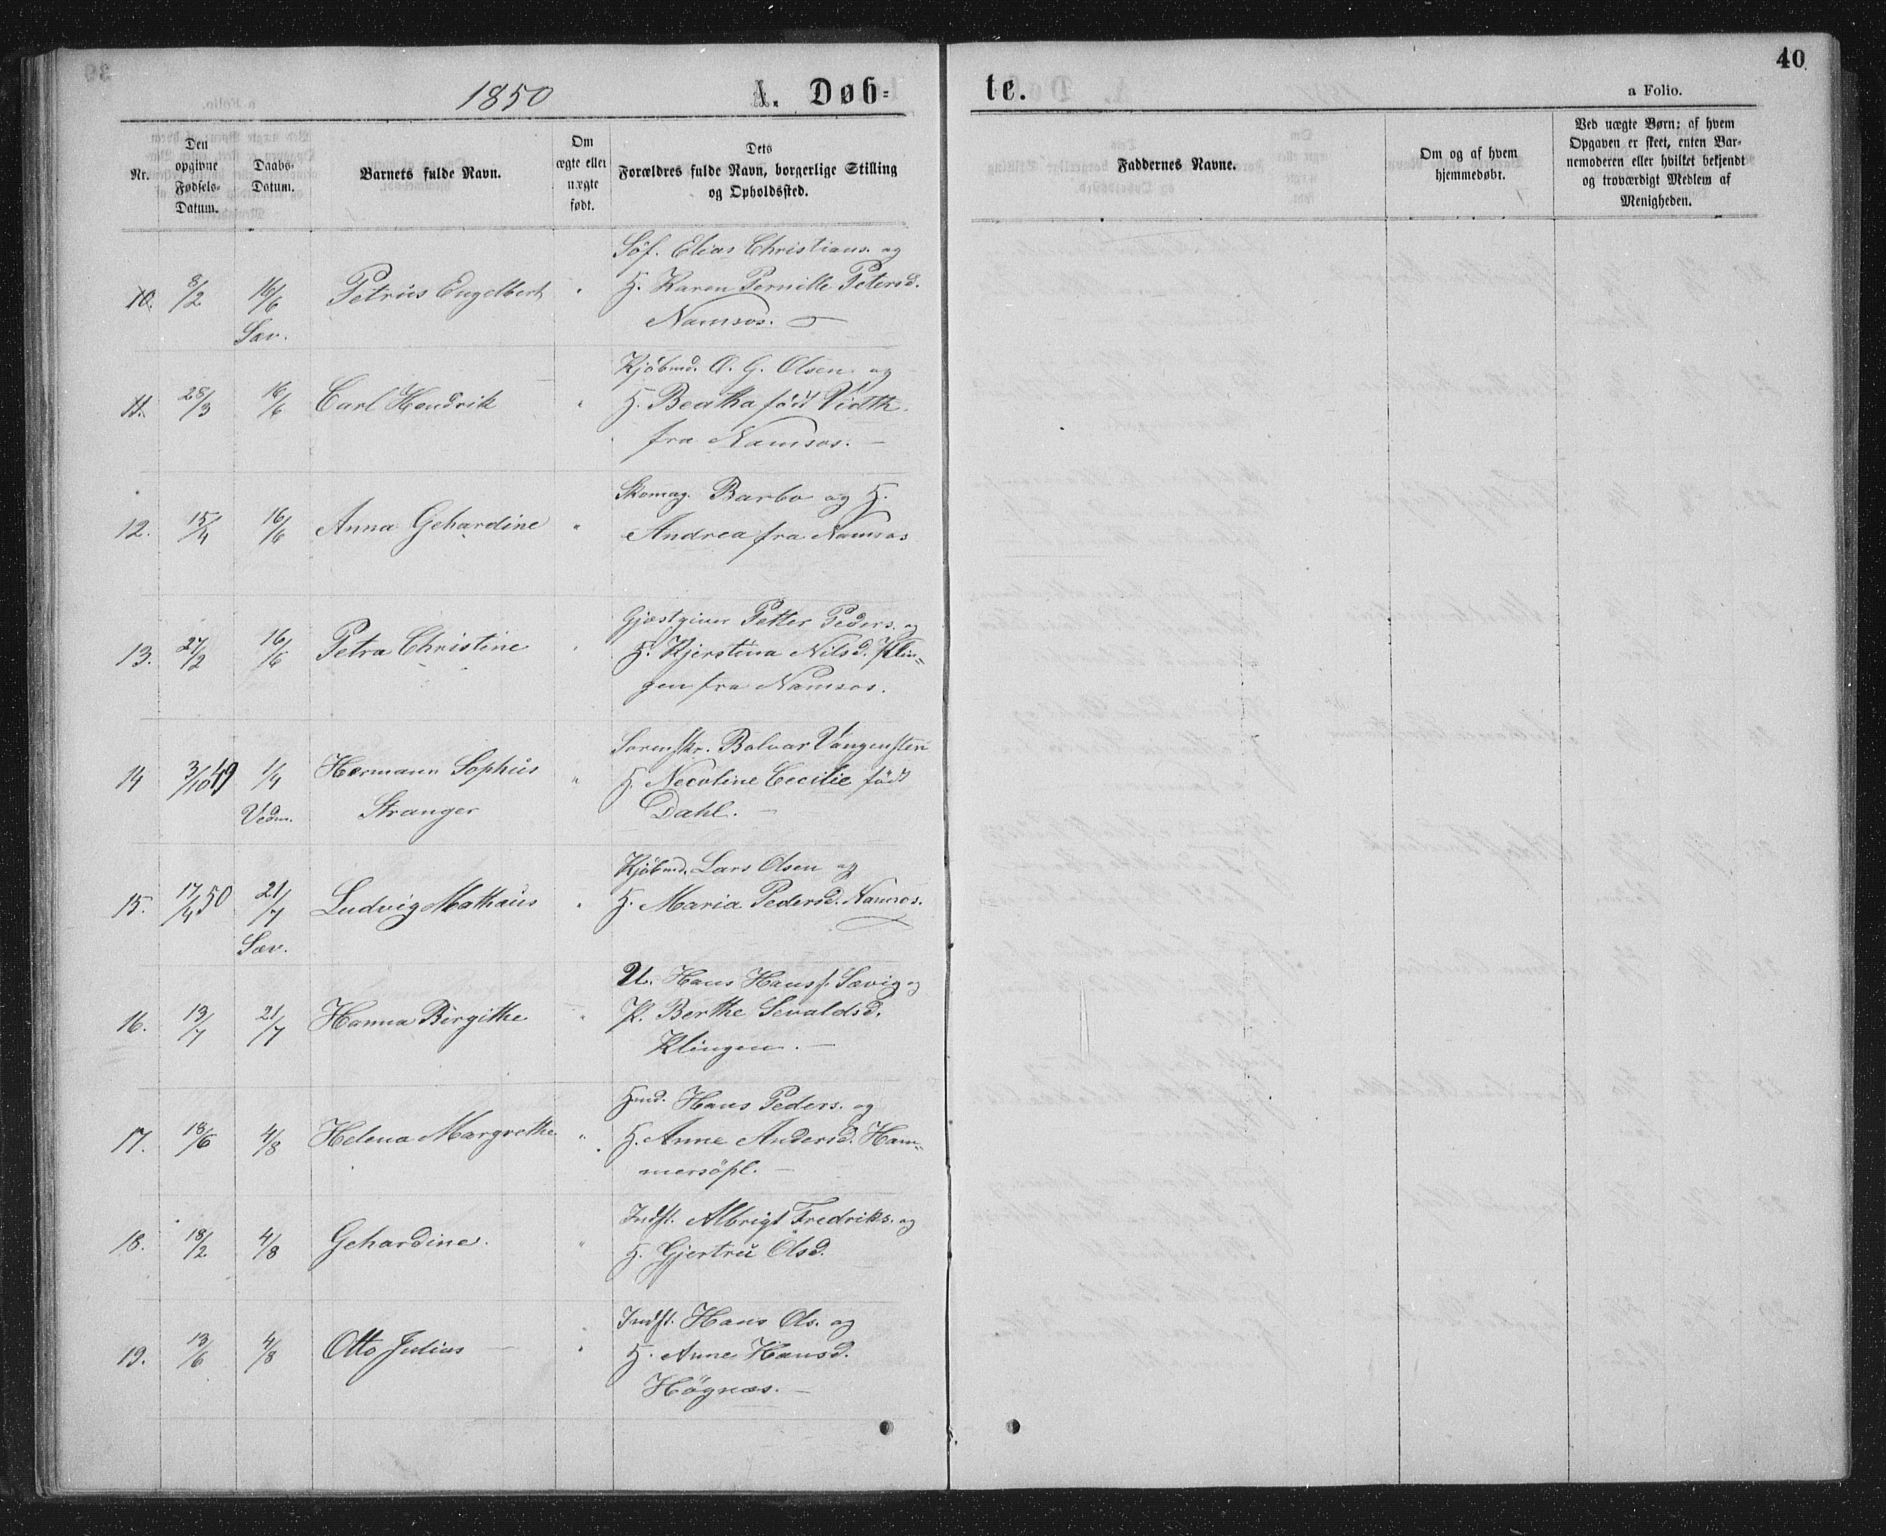 1850 A. Døb-
te. 40
a Folio.
Nr.
Den opgivne Fødsels-Datum.
Daabs-Datum.
Barnets fulde Navn.
Om ægte eller uægte født.
Dets Forældres fulde Navn, borgerlige Stilling og Opholdssted.
Faddernes Navne.
Om og af hvem hjemmedøbt.
Ved uægte Børn: af hvem Opgaven er skeet, enten Bar-nemoderen eller hvilket bekjendt og troværdigt Medlem af Menigheden.
Søf. Elias Christians. og
10. 8/2 16/6 Petrus Engelbert " H. Karen Pernille Petersd.
Sæv. Namsos.
Kjöbmd. O. G. Olsen og
11. 28/3 16/6 Carl Hendrik " H. Beatha født
fra Namsos.
Skomag. Barbo og H.
12. 15/4 16/6 Anna Gehardine " Andrea fra Namsos
Gjæstgiver Petter Peders. og
13. 27/2 16/6 Petra Christine " H. Kjerstina Nilsd. Klin-
gen fra Namsos.
Sorenskr. Balvar Vangensten
14 3/10 49 1/4 Hermann Sophus " H. Necoline Cecilie född
Vedm. Stranger Dahl.
Kjöbmd. Lars Olsen og
15. 17/4 50 21/7 Ludvig Mathæus " H. Maria Pedersd. Namsos.
Sæv.
U. Hans Hanss. Sævig og
16. 13/7 21/7 Hanna Birgithe " P. Berthe Sevaldsd.
Klingen.
Hmd. Hans Peders. og
17. 18/6 4/8 Helena Margrethe " H. Anne Andersd. Ham-
mersöpl.
Indst. Albrigt Fredriks. og
18. 18/2 4/8 Gehardine. " H. Gjertru Olsd.
Indst. Hans Ols. og
19. 13/6 4/8 Otto Julius " H. Anne Hansd.
Högnæs.